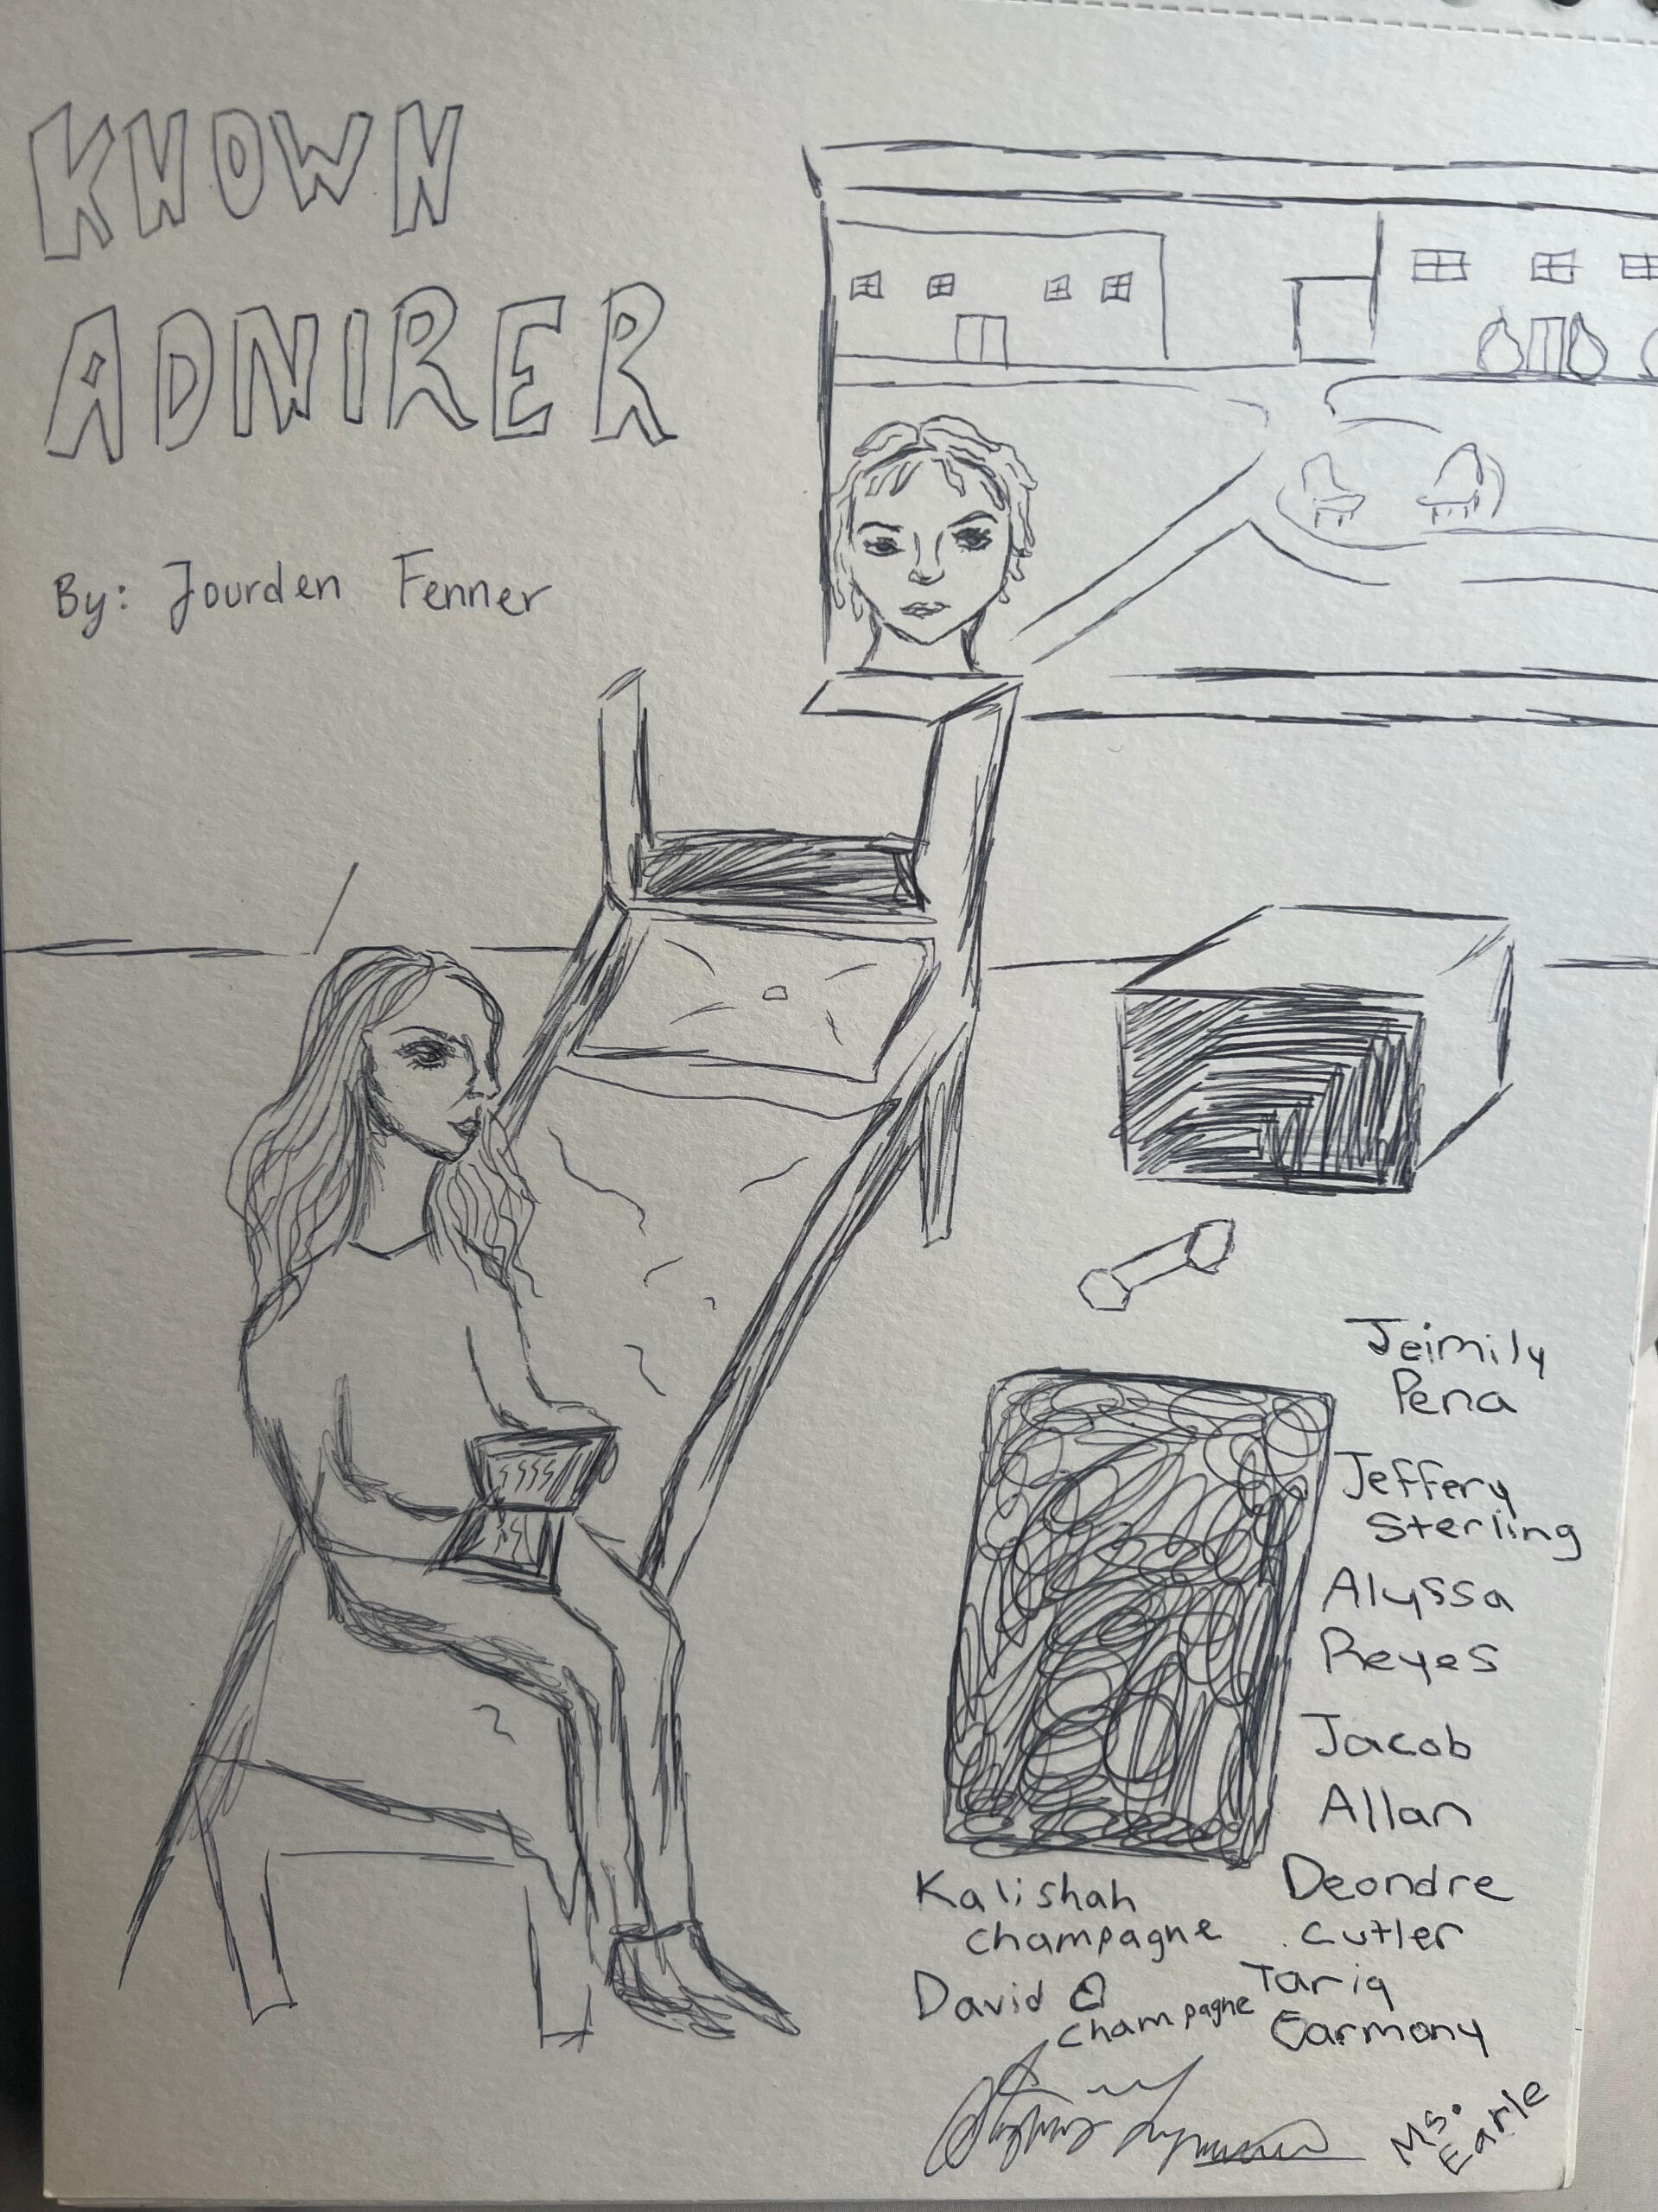 KNOWN
ADNIRER
By: Jourden Fenner
Jeimily
Pena
Jeffery
Sterling
Alyssa
Reyes
Jacob
Allan
Kalishah
champagne
Deondre
Cutler
David
champagne
Tariq
Earmony
Ms.
Earle